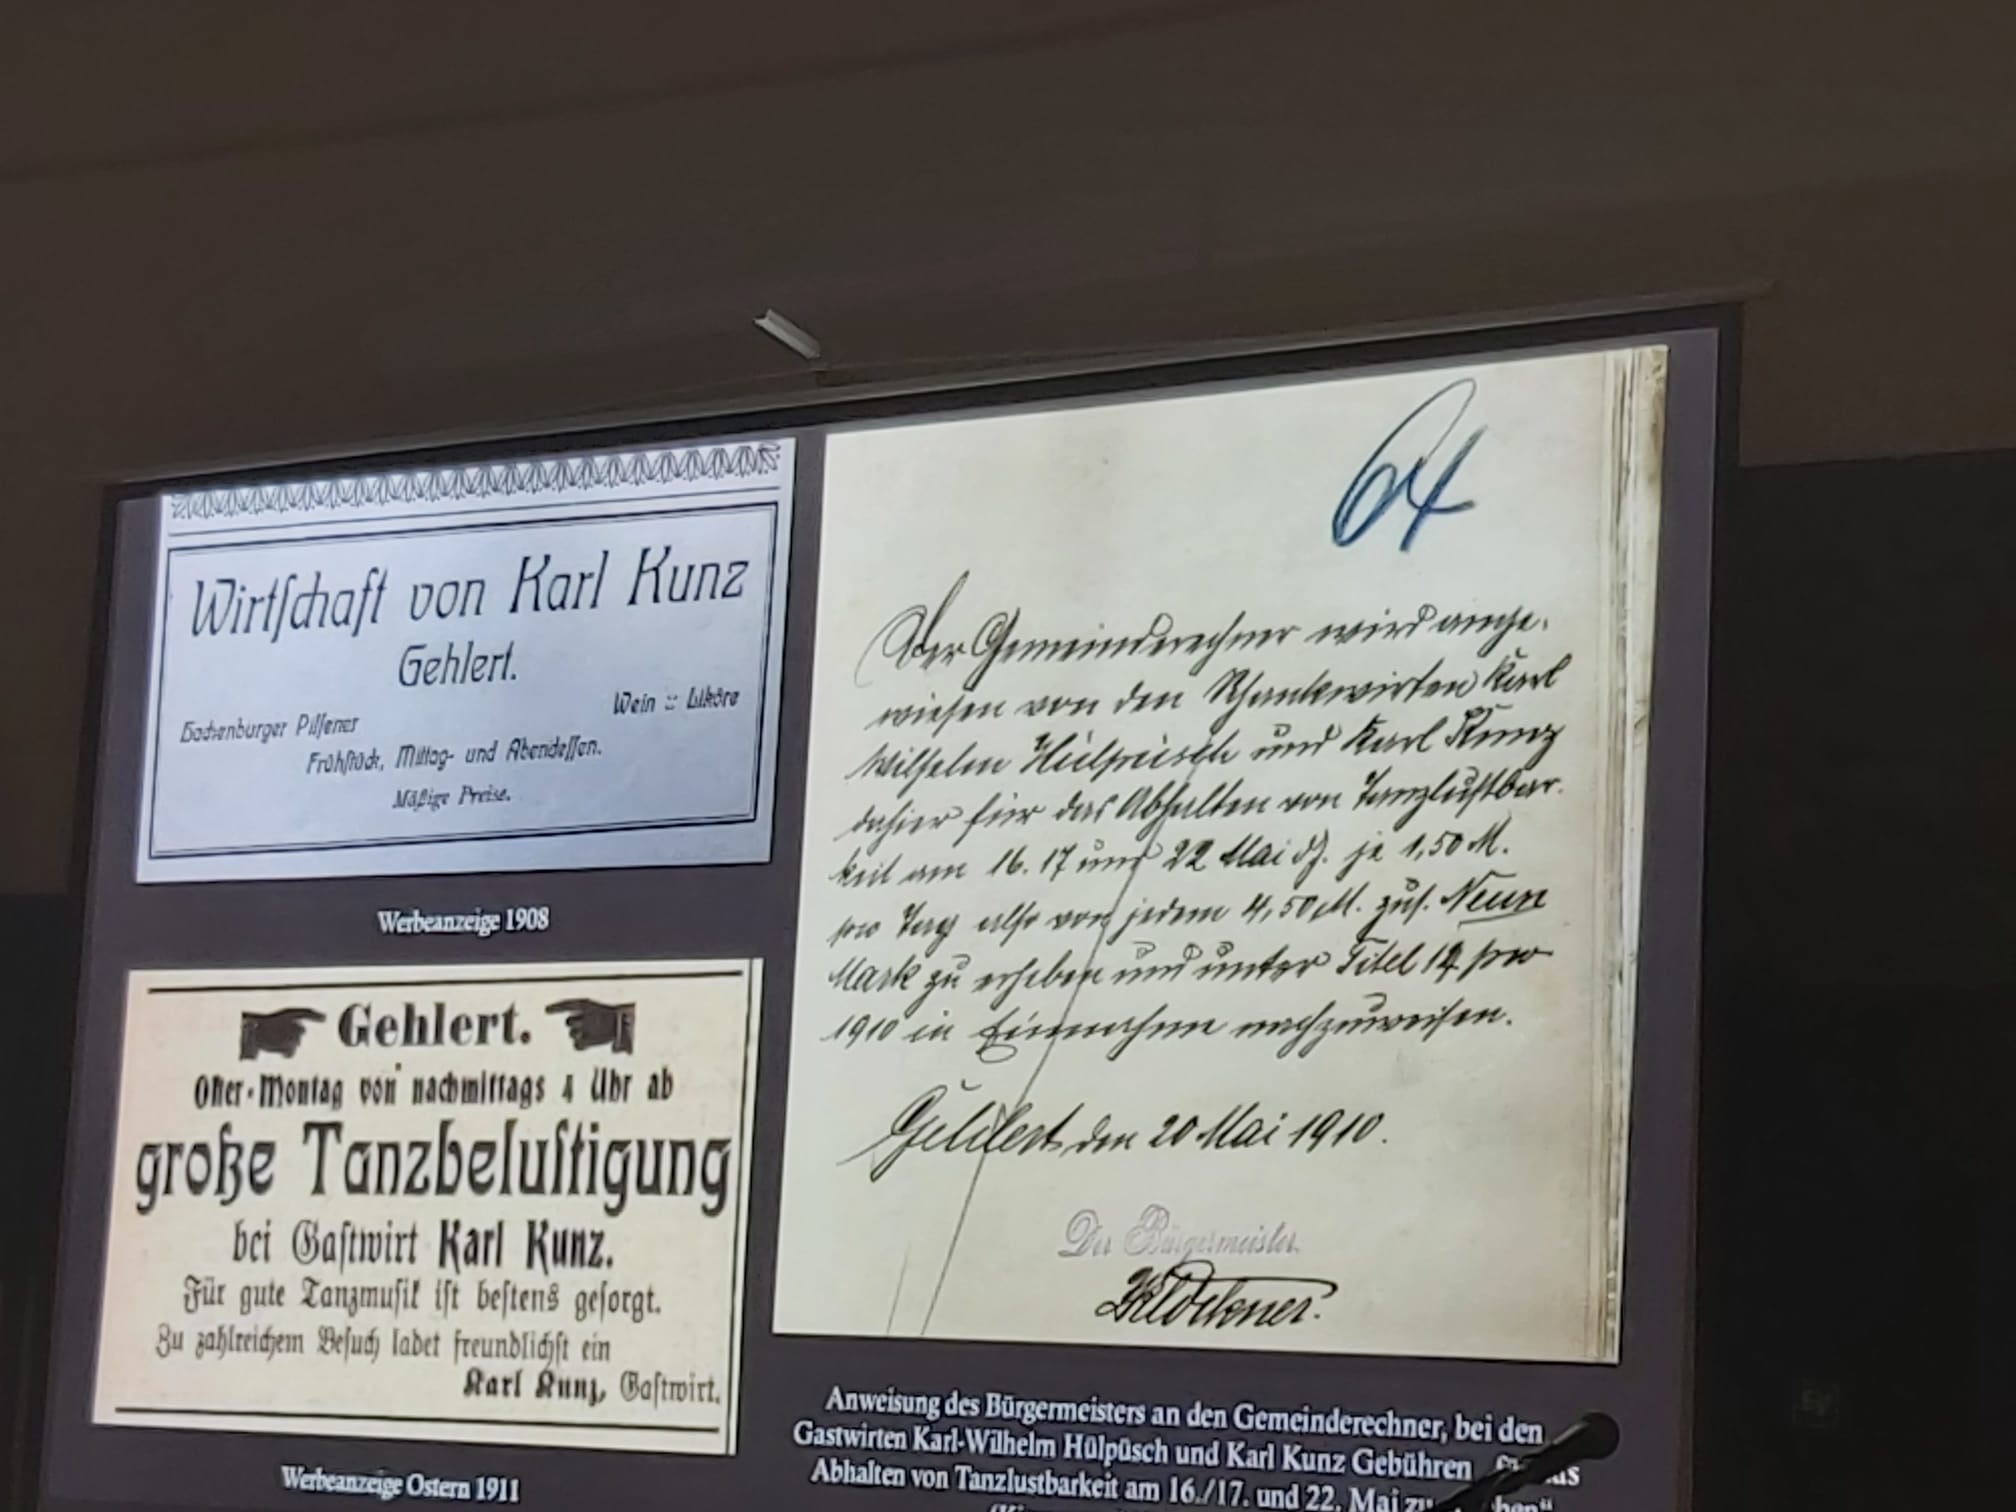 Wirtſchaft von Karl Kunz
Gehlert.
Wein :: Liköre
Hachenburger Pilſener
Frühſtück, Mittag- und Abendeſſen.
Mäßige Preise.
Werbeanzeige 1908
Gehlert.
Oſter-Montag von nachmittags 4 Uhr ab
große Tanzbeluſtigung
bei Gaſtwirt Karl Kunz.
Für gute Tanzmuſik iſt beſtens geſorgt.
Zu zahlreichem Beſuch ladet freundlichſt ein
Karl Kunz, Gaſtwirt.
Werbeanzeige Ostern 1911
64
Der Gemeinderechner wird ange-
wiesen von den Schankwirten Karl
Wilhelm Hülpüsch und Karl Kunz
dahier für das Abhalten von Tanzlustbar-
keit am 16. 17 und 22 Mai ds. je 1,50 M.
pro Tag also von jedem 4,50 M. zus. Neun
Mark zu erheben und unter Titel 12 pro
1910 in Einnahme nachzuweisen.
Gehlert den 20 Mai 1910.
Der Bürgermeister.
Anweisung des Bürgermeisters an den Gemeinderechner, bei den
Gastwirten Karl-Wilhelm Hülpüsch und Karl Kunz Gebühren
Abhalten von Tanzlustbarkeit am 16./17. und 22. Mai